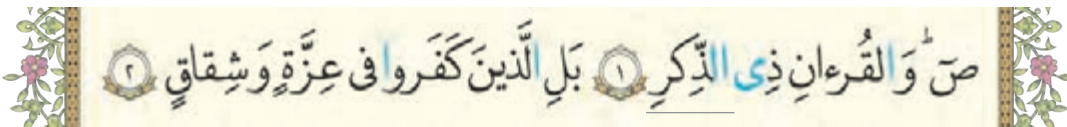 صٓ ۚ وَ القُرءانِ ذِی الذِّکرِ ۱ بَلِ الَّذینَ کَفَروا فی عِزَّةٍ وَ شِقاقٍ ۲